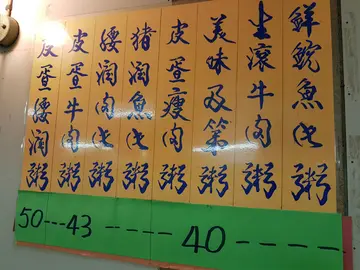 鮮鯇魚片粥
生滾牛肉粥
美味及第粥
皮蛋瘦肉粥
猪润魚片粥
腰润肉片粥
皮蛋牛肉粥
皮蛋腰润粥
50---43-----40-----